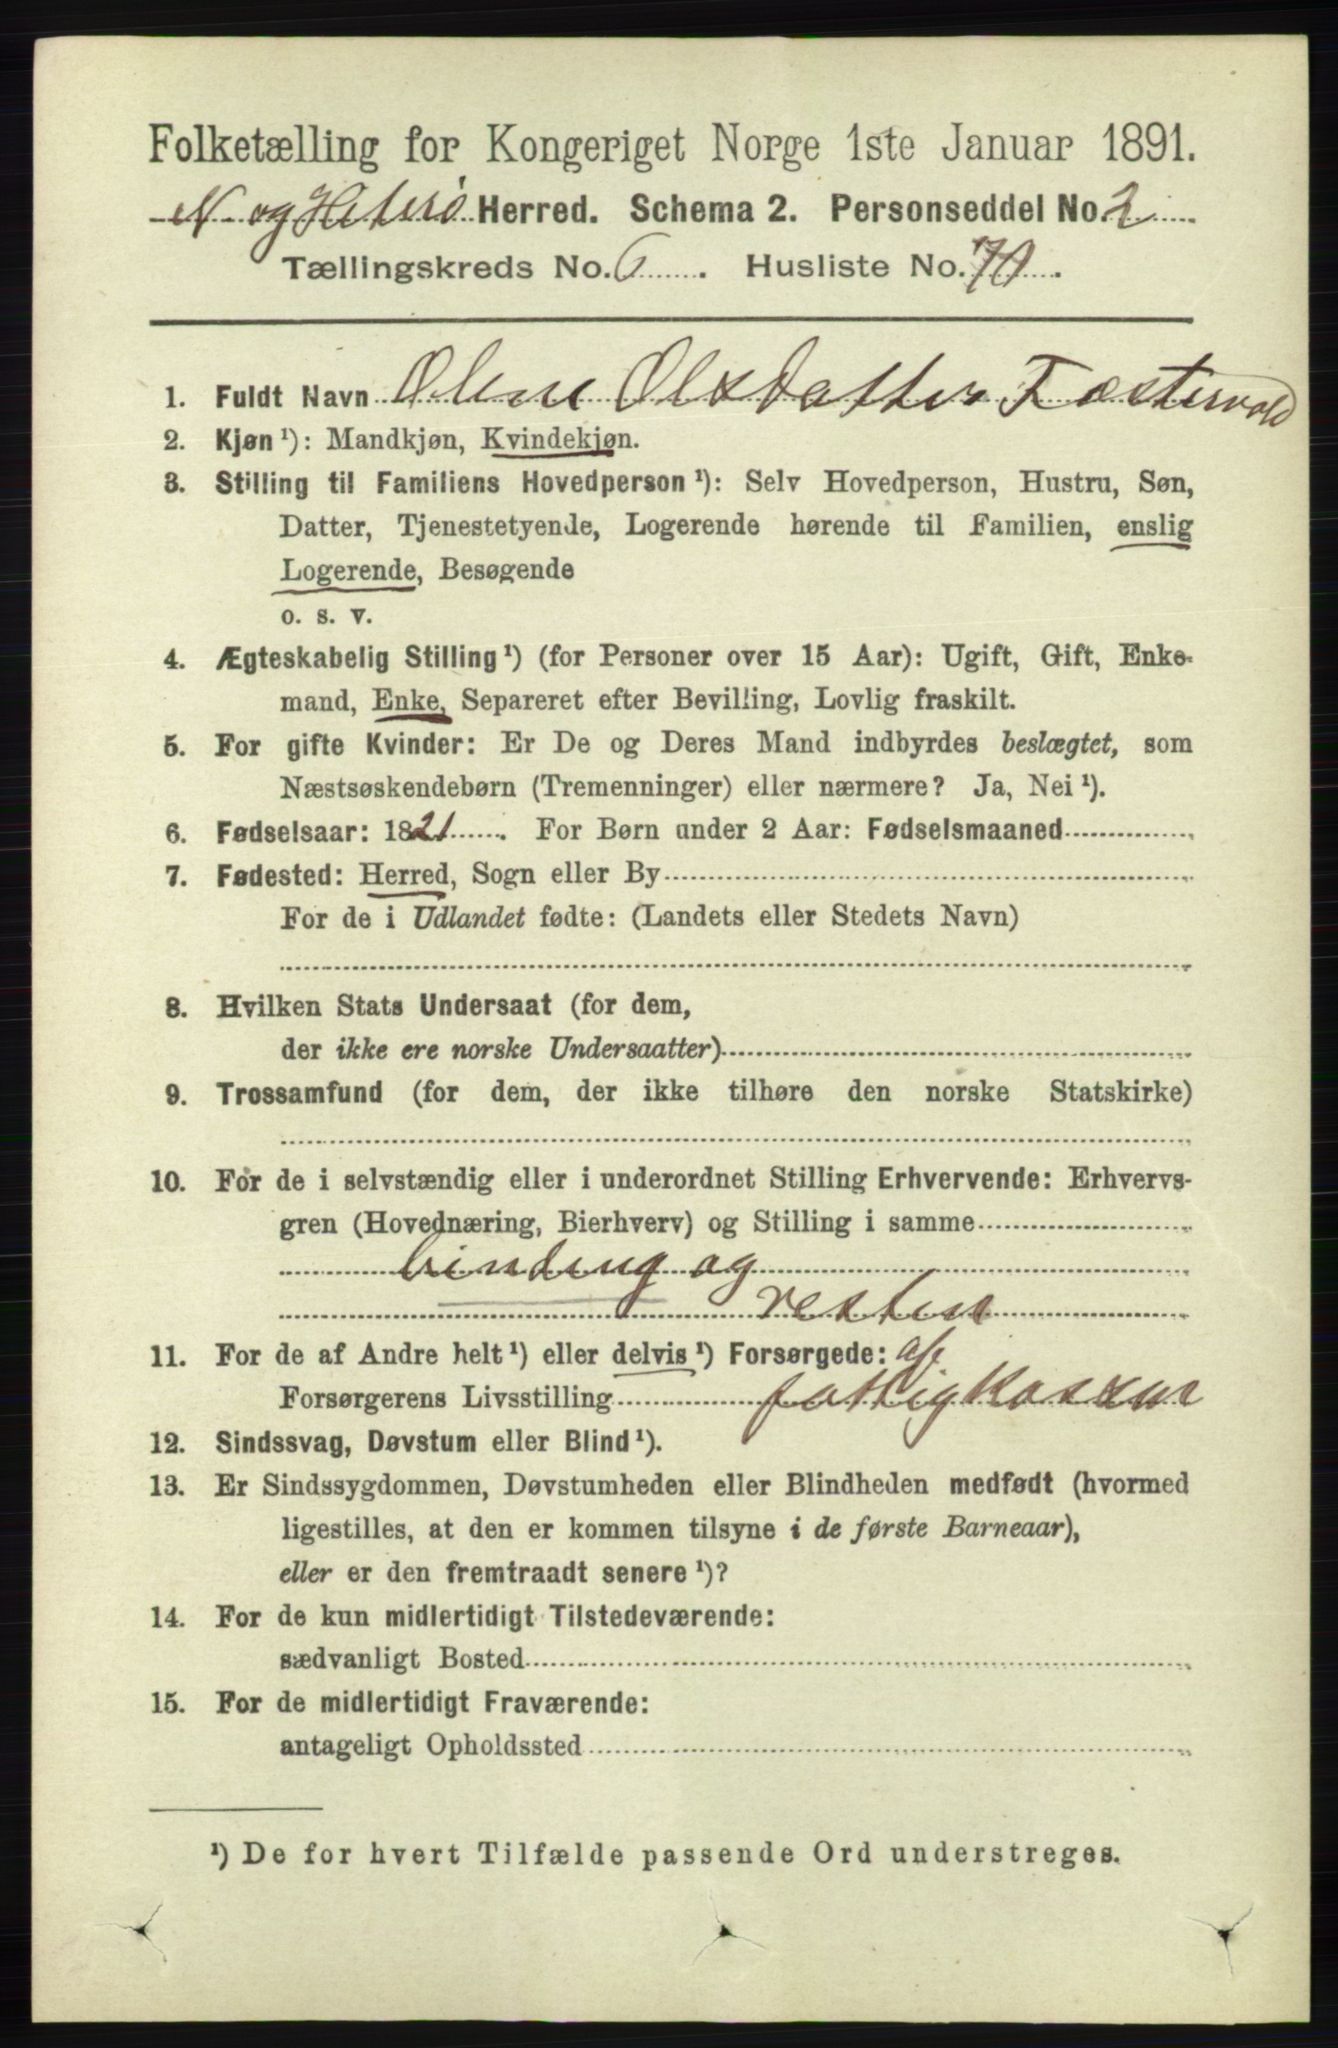 Folketælling for Kongeriget Norge 1ste Januar 1891.
N og Hiterø Herred. Schema 2. Personseddel No. 2
Tællingskreds No. 6. Husliste No. 70.
1. Fuldt Navn Olene Olsdatter Fostervold
2. Kjøn¹): Mandkjøn, Kvindekjøn.
3. Stilling til Familiens Hovedperson¹): Selv Hovedperson, Hustru, Søn,
Datter, Tjenestetyende, Logerende hørende til Familien, enslig
Logerende, Besøgende
o. s. v.
4. Ægteskabelig Stilling¹) (for Personer over 15 Aar): Ugift, Gift, Enke-
mand, Enke, Separeret efter Bevilling, Lovlig fraskilt.
5. For gifte Kvinder: Er De og Deres Mand indbyrdes beslægtet, som
Næstsøskendebørn (Tremenninger) eller nærmere? Ja, Nei¹).
6. Fødselsaar: 1821. For Børn under 2 Aar: Fødselsmaaned
7. Fødested: Herred, Sogn eller By
For de i Udlandet fødte: (Landets eller Stedets Navn)
8. Hvilken Stats Undersaat (for dem,
der ikke ere norske Undersaatter)
9. Trossamfund (for dem, der ikke tilhøre den norske Statskirke)
10. For de i selvstændig eller i underordnet Stilling Erhvervende: Erhvervs-
gren (Hovednæring, Bierhverv) og Stilling i samme
binding og
resten
11. For de af Andre helt¹) eller delvis¹) Forsørgede: af
Forsørgerens Livsstilling fattigkassen
12. Sindssvag, Døvstum eller Blind¹).
13. Er Sindssygdommen, Døvstumheden eller Blindheden medfødt (hvormed
ligestilles, at den er kommen tilsyne i de første Barneaar),
eller er den fremtraadt senere¹)?
14. For de kun midlertidigt Tilstedeværende:
sædvanligt Bosted
15. For de midlertidigt Fraværende:
antageligt Opholdssted
¹) De for hvert Tilfælde passende Ord understreges.